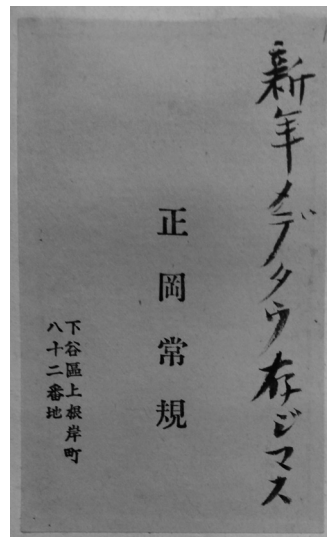 新年メデタウ存ジマス
正岡常規
下谷區上根岸町
八十二番地